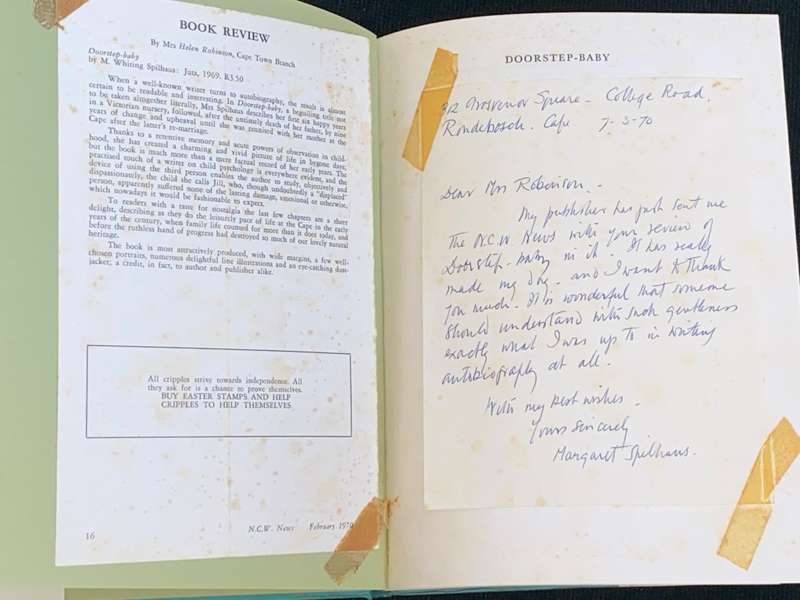 BOOK REVIEW
By Mrs Helen Robinson, Cape Town Branch
Doorstep-baby
by M. Whiting Spilhaus: Juta, 1969. R3.50
When a well-known writer turns to autobiography, the result is almost
certain to be readable and interesting. In Doorstep-baby, a beguiling title not
to be taken altogether literally, Mrs Spilhaus describes her first six happy years
in a Victorian nursery, followed, after the untimely death of her father, by nine
years of change and upheaval until she was reunited with her mother at the
Cape after the latter's re-marriage.
Thanks to a retentive memory and acute powers of observation in child-
hood, she has created a charming and vivid picture of life in bygone days;
but the book is much more than a mere factual record of her early years. The
practised touch of a writer on child psychology is everywhere evident, and the
device of using the third person enables the author to study, objectively and
dispassionately, the child she calls Jill, who, though undoubtedly a "displaced"
person, apparently suffered none of the lasting damage, emotional or otherwise,
which nowadays it would be fashionable to expect.
To readers with a taste for nostalgia the last few chapters are a sheer
delight, describing as they do the leisurely pace of life at the Cape in the early
years of the century, when family life counted for more than it does today, and
before the ruthless hand of progress had destroyed so much of our lovely natural
heritage.
The book is most attractively produced, with wide margins, a few well-
chosen portraits, numerous delightful line illustrations and an eye-catching dust-
jacket, a credit, in fact, to author and publisher alike.
All cripples strive towards independence. All
they ask for is a chance to prove themselves.
BUY EASTER STAMPS AND HELP
CRIPPLES TO HELP THEMSELVES
16
N.C.W. News February 1970
DOORSTEP-BABY
Grosvenor Square - College Road.
Rondebosch. Cape 7-3-70
Dear Mrs Robinson.
My publisher has just sent me
the N.C.W. News with your review of
Doorstep-baby in it. It has really
made my day - and I want to thank
you much. It is wonderful that someone
should understand with such gentleness
exactly what I was up to in writing
autobiography at all.
With my best wishes -
Yours sincerely
Margaret Spilhaus.